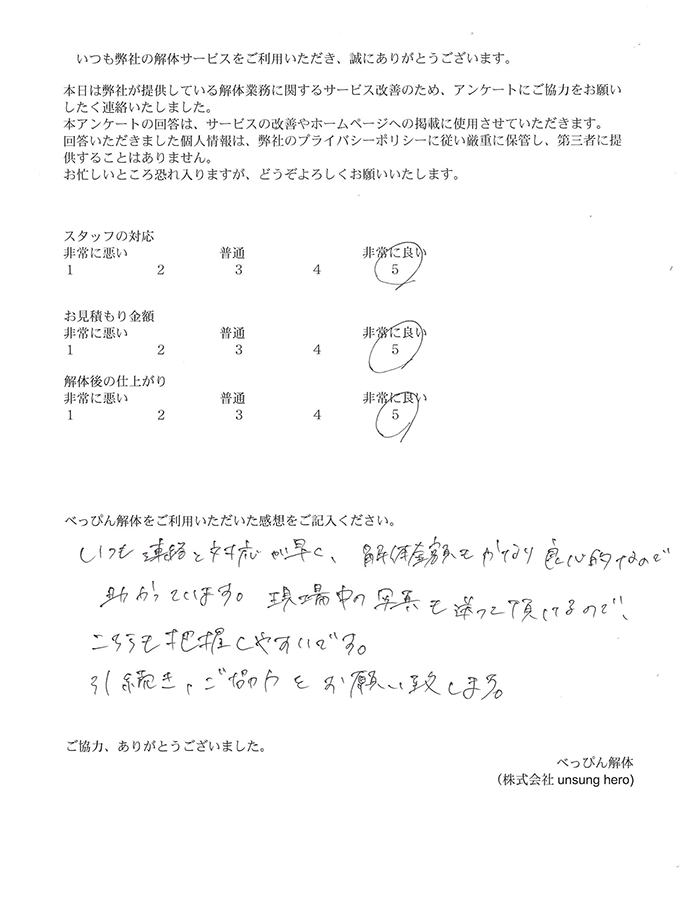 いつも弊社の解体サービスをご利用いただき、誠にありがとうございます。
本日は弊社が提供している解体業務に関するサービス改善のため、アンケートにご協力をお願い
したく連絡いたしました。
本アンケートの回答は、サービスの改善やホームページへの掲載に使用させていただきます。
回答いただきました個人情報は、弊社のプライバシーポリシーに従い厳重に保管し、第三者に提
供することはありません。
お忙しいところ恐れ入りますが、どうぞよろしくお願いいたします。
スタッフの対応
非常に悪い 普通 非常に良い
1 2 3 4 5
お見積もり金額
非常に悪い 普通 非常に良い
1 2 3 4 5
解体後の仕上がり
非常に悪い 普通 非常に良い
1 2 3 4 5
べっぴん解体をご利用いただいた感想をご記入ください。
いつも連絡と対応が早く、解体金額もかなり良心的なので
助かっています。現場中の写真も送って頂けるので、
こちらも把握しやすいです。
引続き、ご協力をお願い致します。
ご協力、ありがとうございました。
べっぴん解体
（株式会社 unsung hero)